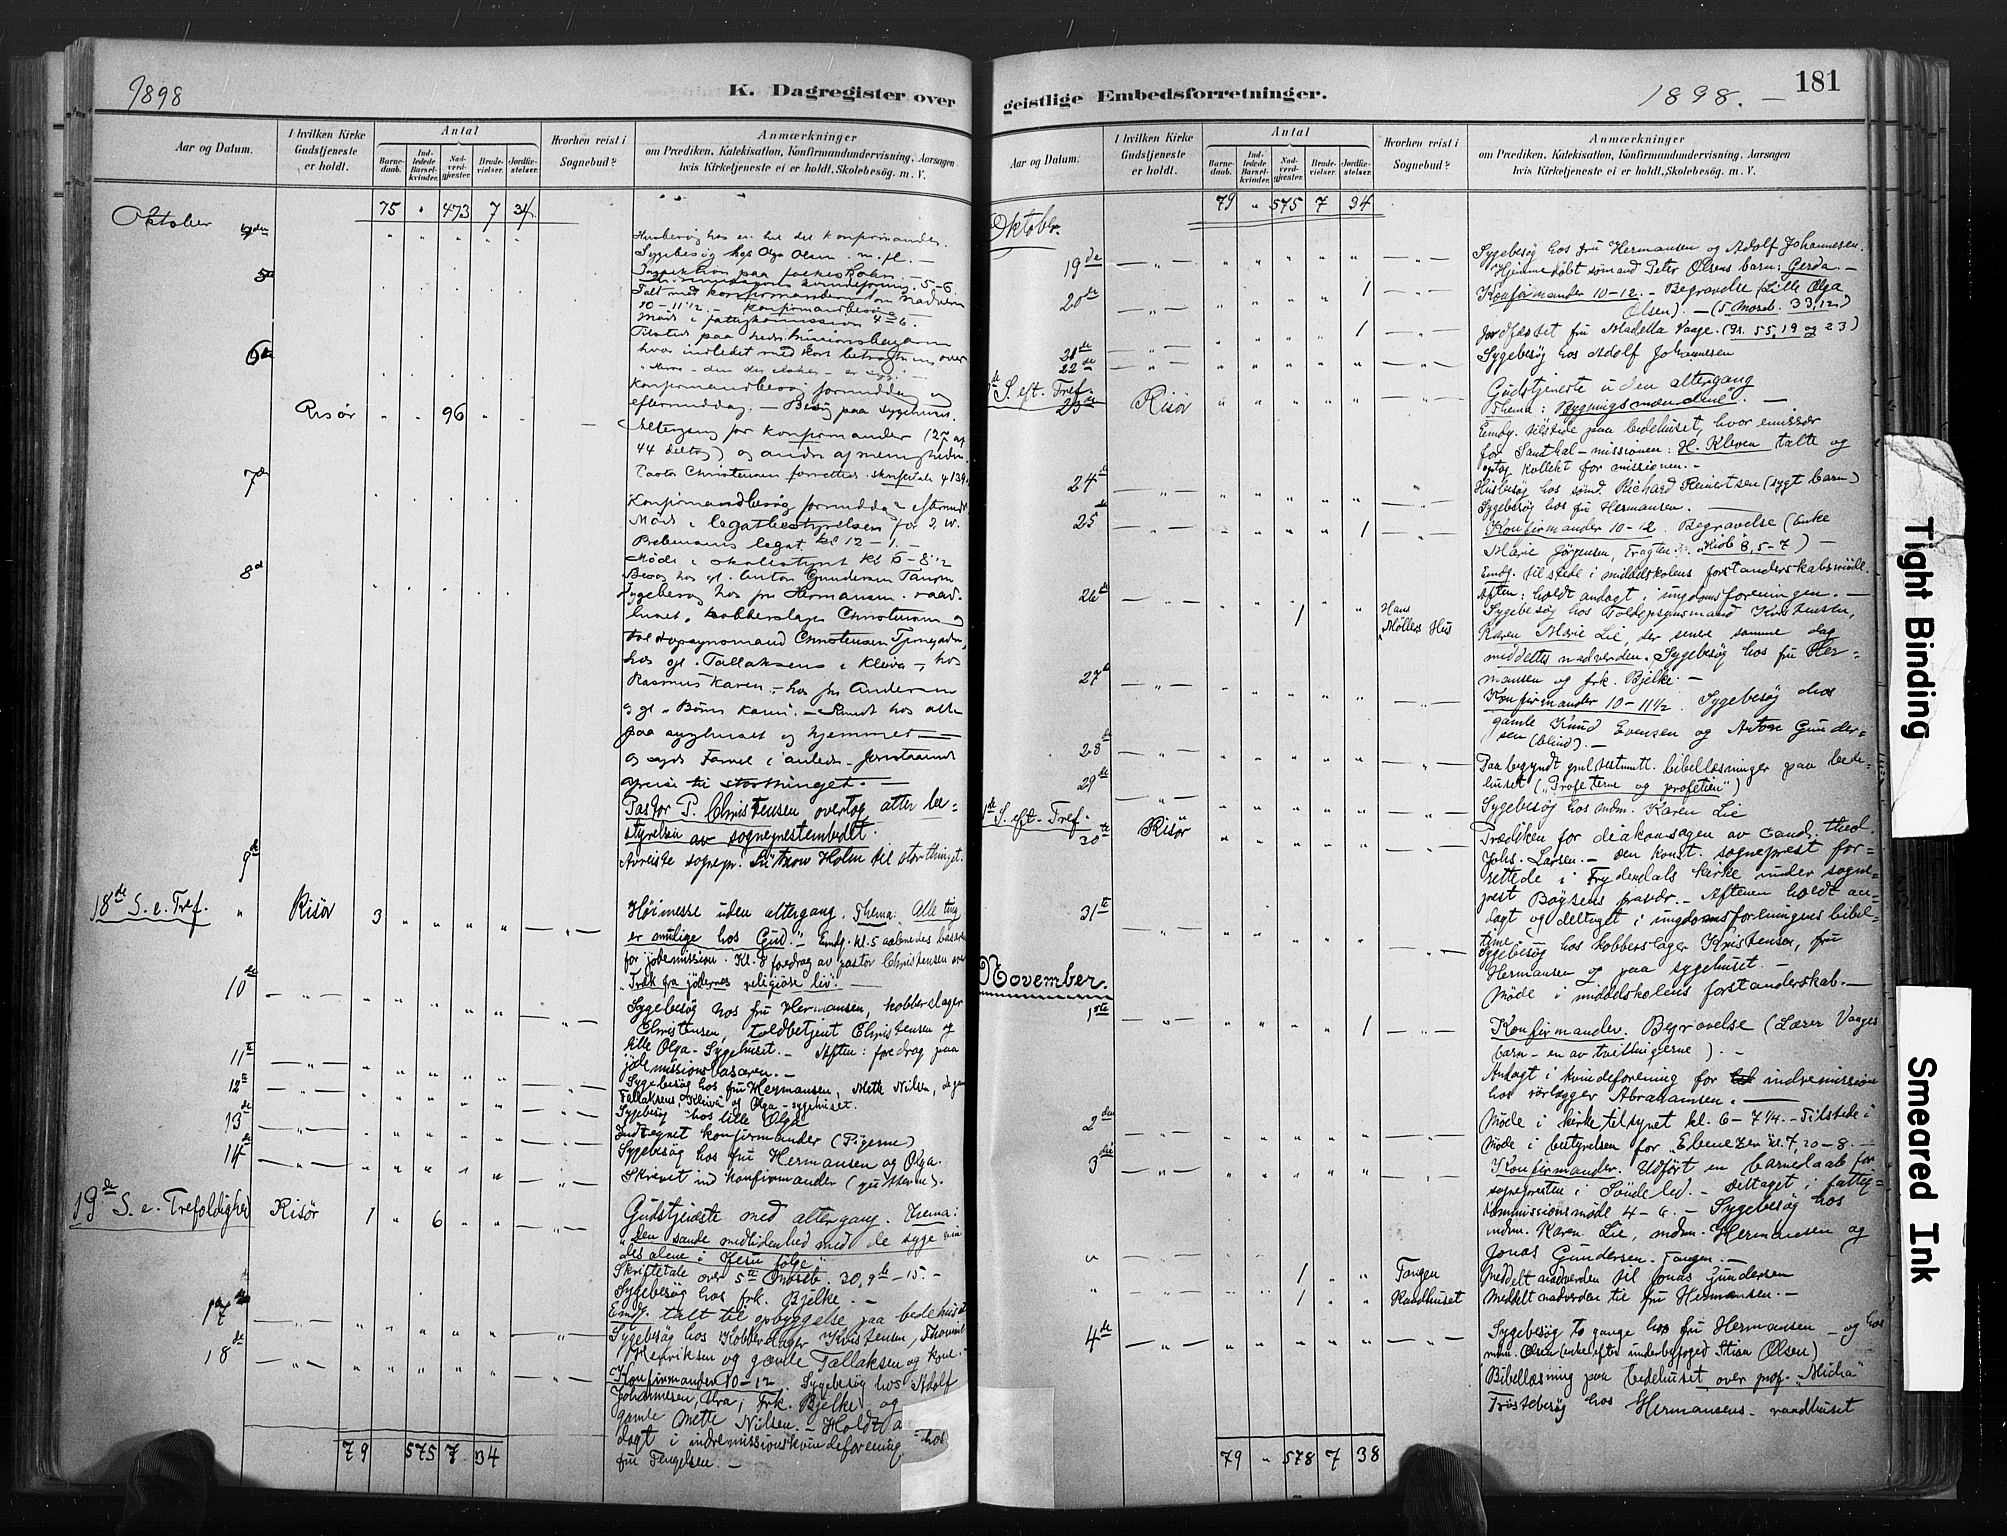 1898
K. Dagregister over
Aar og Datum.
I hvilken Kirke Gudstjeneste er holdt.
Antal
Barnedaab.
Indledede Barselkvinder.
Nadverdgjæster.
Brudevielser.
Jordfæstelser.
Hvorhen reist i Sognebud?
Anmærkninger
om Prædiken, Katekisation, Konfirmandundervisning, Aarsagen
hvis Kirketjeneste ei er holdt, Skolebesøg. m. V.
75 " 473 7 34
Oktober
Husbesøg hos en hel del konfirmander.
Sygebesøg hos Olga Olsen m. fl. —
5te Inspektion paa folkeskolen. —
kvindeforening. 5-6.
Talt med konfirmanderne om nadveren
10 - 11 1/2. — Konfirmandbesøg —
Møde i fattigkommissionen 4-6.
6te
hvor indledet med kort betragtning over
Konfirmandbesøg formiddag og
eftermiddag. — Besøg paa sygehuset.
Risør 96
Altergang for konfirmander
44 deltog) og andre af menigheden.
Pastor Christensen forrettede. skriftetale
7de
Konfirmandbesøg formiddag
Møde i legatbestyrelsen for
legat kl 12 - 1. —
Møde i skolestyret kl 6 - 8 1/2
8de
Besøg hos gl. Anton Gundersen Tangen
Sygebesøg hos fru Hermansen raad-
huset, kobberslager Christensen og
toldopsynsmand Christensen
hos gl. Tallaksens i Kleiva — hos
Rasmus Karen — hos fru Andersen
paa sygehuset og hjemmet
reise til storthinget. —
Pastor P. Christensen overtog atter be-
styrelsen av sogneprestembedet.
9de Avreiste sognepr. Lützow Holm til storthinget.
18de S. e. Tref. " Risör 3 " " " " — " —
Høimesse uden altergang. Thema: Alle ting
er mulige hos Gud." — Emdg. kl. 5 aabnedes basaren
for jødemission. Kl. 8 foredrag av pastor Christensen over
"Træk fra jødernes religiøse liv". —
10de — " —
Sygebesøg hos fru Hermansen, kobberslager
Christensen, toldbetjent Christensen og
lille Olga - Sygehuset. — Aften: foredrag paa
11te — " —
jødemissionsbasaren. —
12te — " —
Sygebesøg hos fru Hermansen, Mette Nilsen, de gamle
Tallaksens Kleiva og Olga - sygehuset.
13de — " —
Sygebesøg hos lille Olga
Indtegnet konfirmander (Pigerne)
14de — " —
Sygebesøg hos fru Hermansen og Olga.
Skrevet ind konfirmander (gutterne).
19de S. e. Trefoldighed Risör 1 " 6 " " — " —
Gudstjeneste med altergang. Thema:
"Den sande medlidenhed med de syge vin
des alene i Jesu følge"
Skriftetale over 5te Moseb. 30, 9b - 15. —
Sygebesøg hos frk. Bjelke. —
17de — " —
Emdg. talt til opbyggelse paa bedehuset
Sygebesøg hos Kobberslager Kristensen,
18de — " —
Henriksen og gamle Tallaksen og kone. —
Konfirmander 10 - 12. Sygebesøg hos Adolf
Johannesen, Frk. Bjelke og
gamle Mette Nilsen. — Holdt an-
dagt i indremissionskvindeforening hos
fru Fengelsen. —
79 575 7 34
geistlige Embedsforretninger.
1898. —
181
Aar og Datum.
I hvilken Kirke Gudstjeneste er holdt.
Antal
Barnedaab.
Indledede Barselkvinder.
Nadverdgjæster.
Brudevielser.
Jordfæstelser.
Hvorhen reist i Sognebud?
Anmærkninger
om Prædiken, Katekisation, Konfirmandundervisning, Aarsagen
hvis Kirketjeneste ei er holdt, Skolebesøg. m. V.
79 " 575 7 34
Oktober.
19de — " —
Sygebesøg hos fru Hermansen og Adolf Johannesen.
Hjemmedøbt sømand Peter Olsens barn: Gerda. —
20de — " — 1
Konfirmander 10-12. — Begravelse (Lille Olga
Olsen). — (5 Moseb. 33,12)
1
Jordfæstet fru Madella Vaage. (Ps. 55,19 og 23)
21de — " —
Sygebesøg hos Adolf Johannesen
22de — " —
S. eft. Tref.
23de Risör
Gudstjeneste uden altergang
Thema: "Bygningsmændene". —
Emdg. tilstede paa bedehuset, hvor emissær
for Santhal-missionen: H. Kleven talte og
optog kollekt for missionen. —
24de — " —
Husbesøg hos sømd. Richard Reinertsen (sygt barn)
Sygebesøg hos fru Hermansen. —
25de — " — 1
Konfirmander 10-12. Begravelse (Enke
Marie Jørgensen, "Hiob" 8, 5-7) —
Emdg. tilstede i middelskolens forstanderskabsmøde.
Aften: holdt andagt i ungdomsforeningen. —
26de — " — 1 Hans Møllers Hus
Sygebesøg hos Toldopsynsmand Kristensen,
Karen Marie Lie, der senere samme dag
meddeltes nadverden. Sygebesøg hos fru Her-
mansen og frk. Bjelke. —
27de — " —
Konfirmander 10 - 11 1/2. Sygebesøg hos
gamle Knud Evensen og Anton Gunder-
sen (blind). —
28de — " —
Paabegyndt gml. testamentl. bibellæsninger paa bede-
huset ("Profeterne og profetien")
29de — " —
Sygebesøg hos mdm. Karen Lie
S. eft. Tref.
30te Risör
Prædiken for diakonsagen av cand. theol.
Johs. Larsen. — Den konst. sogneprest for-
rettede i Frydendals kirke under sogne-
prest Böysens fravær. — Aftenen holdt an-
dagt og deltaget i ungdomsforeningens bibel-
time.
31te — " —
Sygebesøg hos kobberslager Kristensen, fru
Hermansen og paa sygehuset. —
Møde i middelskolens forstanderskab. —
November.
1ste — " — 1
Konfirmander. Begravelse (Lærer Vaages
barn - en av tvillingerne). —
Andagt i kvindeforening for indremission
hos rørlægger Abrahamsen. —
2den — " —
Møde i kirketilsynet kl. 6 - 7 1/4. — Tilstede i
møde i bestyrelsen for "Ebenezer" kl. 7,20 - 8. —
3die — " —
Konfirmander. Udført en barnedaab for
sognepresten i Søndeled. — Deltaget i fattig-
kommissionsmøde 4 - 6. — Sygebesøg hos
mdm. Karen Lie, mdm. Hermansen og
Jonas Gundersen. Tangen. —
" 1 Tangen Meddelt nadverden til Jonas Gundersen
" 1 Raadhuset Meddelt nadverden til fru Hermansen. —
4de — " —
Sygebesøg to gange hos fru Hermansen — og hos
mdm. Olsen (enke efter underbefoged Stian Olsen)
Bibellæsning paa bedehuset over prof. "Micha"
Trøstebesøg hos Hermansens - raadhuset
79 " 578 7 38
Tight Binding
Smeared Ink